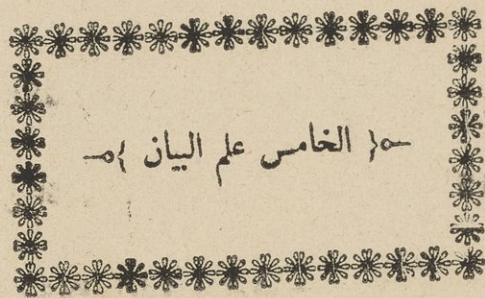 ﴿ الخامس علم البيان ﴾